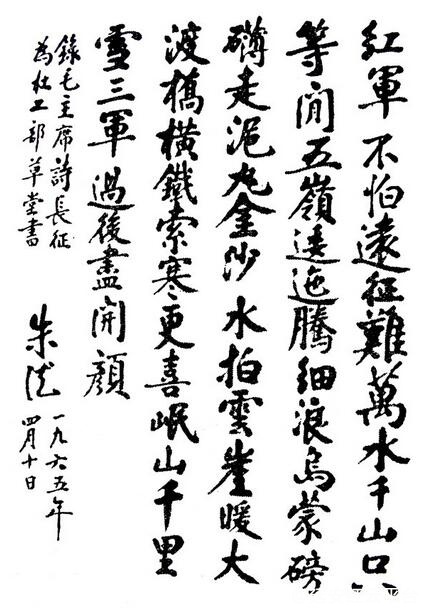 紅軍不怕遠征難萬水千山只
等閒五嶺逶迤騰細浪烏蒙磅
礡走泥丸金沙水拍雲崖暖大
渡橋橫鐵索寒更喜岷山千里
雪三軍過後盡開顏
錄毛主席詩長征
為杜工部草堂書
朱德
一九六五年
四月十日